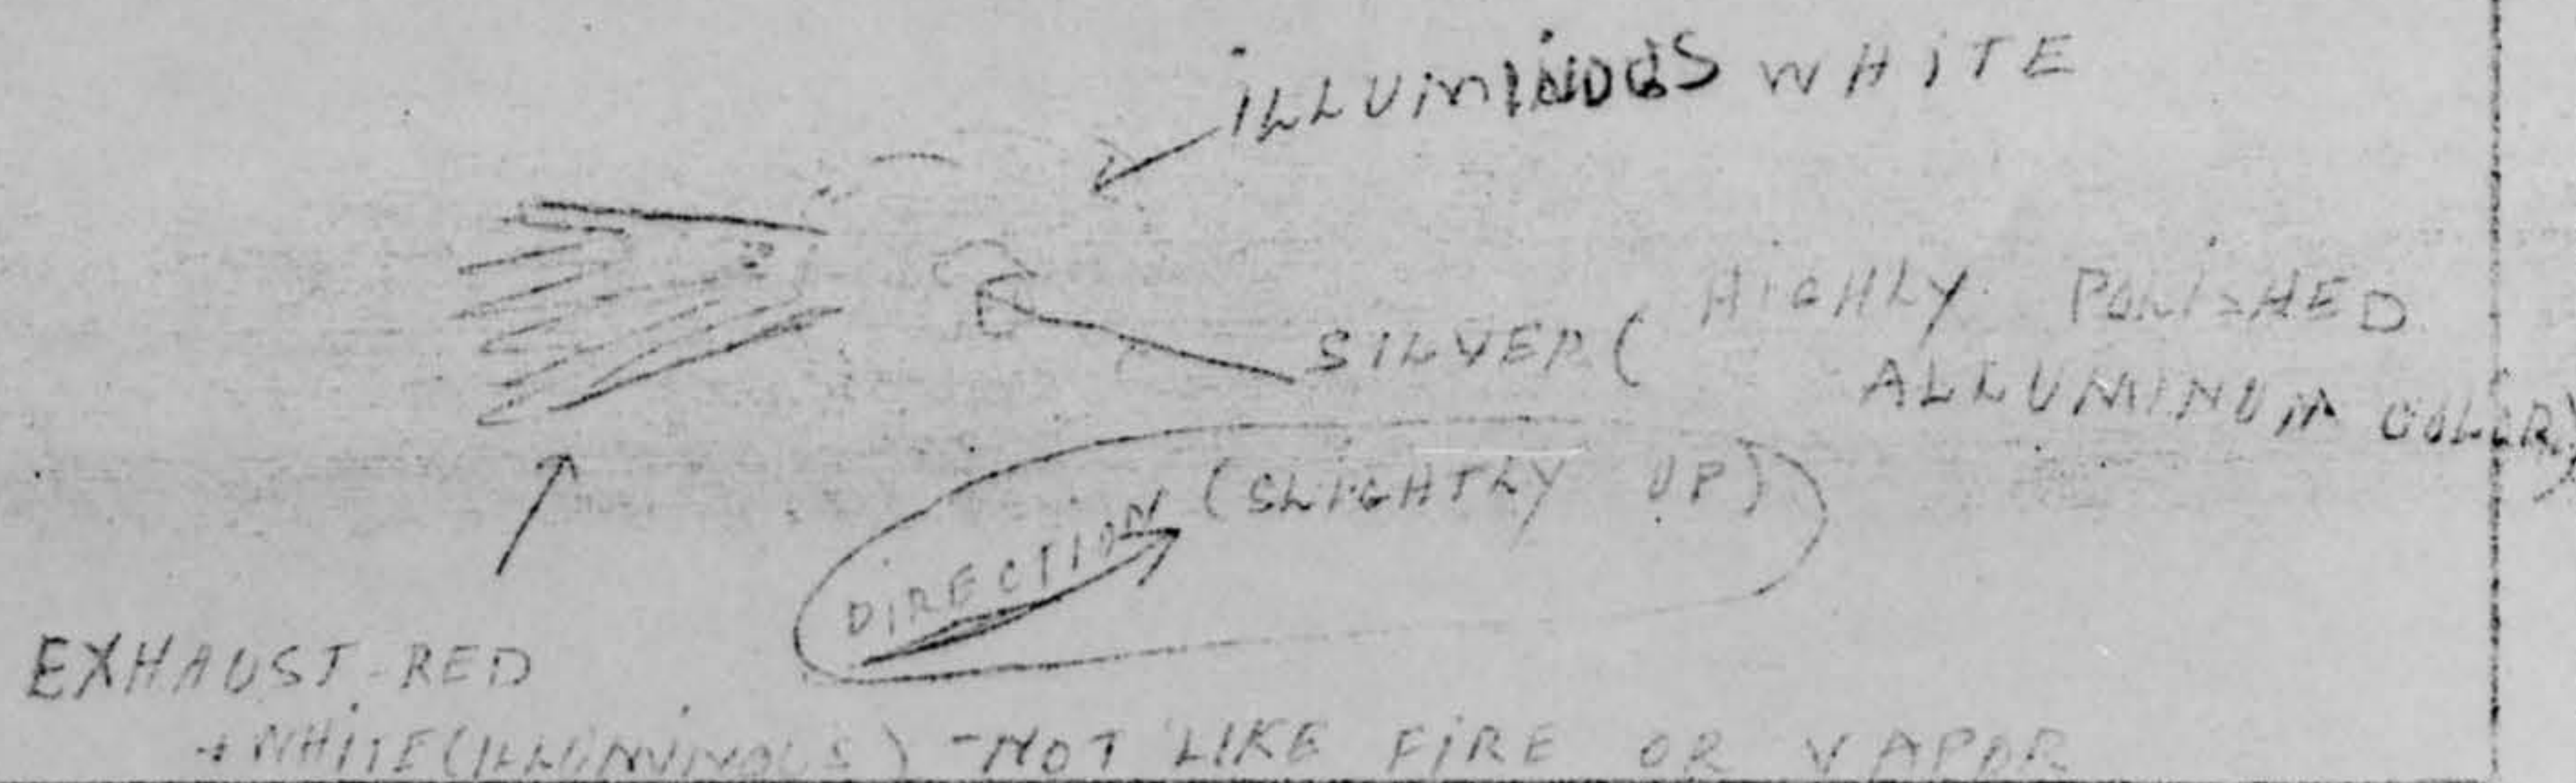 iLLUMINOUS WHiTE
SILVER ( HIGHLY POLISHED
ALLUMINUM COLOR)
DIRECTION (SLIGHTLY UP)
EXHAUST-RED
+ WHITE (ILLUMINOUS) - NOT LIKE FIRE OR VAPOR